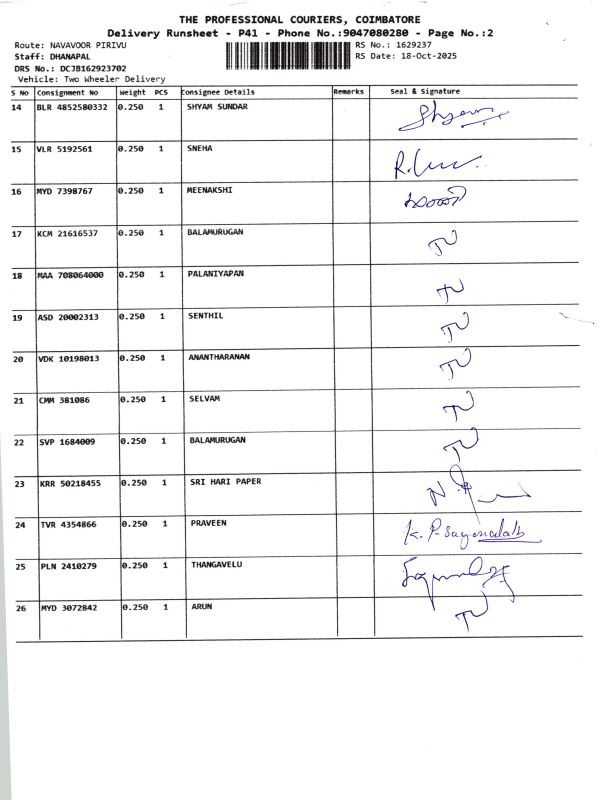 THE PROFESSIONAL COURIERS, COIMBATORE
Delivery Runsheet - P41 - Phone No.:9047080280 - Page No.:2
Route: NAVAVOOR PIRIVU RS No.: 1629237
Staff: DHANAPAL RS Date: 18-Oct-2025
DRS No.: DCJB162923702
Vehicle: Two Wheeler Delivery
S No Consignment No Weight PCS Consignee Details Remarks Seal & Signature
14 BLR 4852580332 0.250 1 SHYAM SUNDAR Shyam
15 VLR 5192561 0.250 1 SNEHA
16 MYD 7398767 0.250 1 MEENAKSHI
17 KCM 21616537 0.250 1 BALAMURUGAN
18 MAA 708064000 0.250 1 PALANIYAPAN
19 ASD 20002313 0.250 1 SENTHIL
20 VDK 10198013 0.250 1 ANANTHARANAN
21 CMM 381086 0.250 1 SELVAM
22 SVP 1684009 0.250 1 BALAMURUGAN
23 KRR 50218455 0.250 1 SRI HARI PAPER
24 TVR 4354866 0.250 1 PRAVEEN K. P.
25 PLN 2410279 0.250 1 THANGAVELU
26 MYD 3072842 0.250 1 ARUN